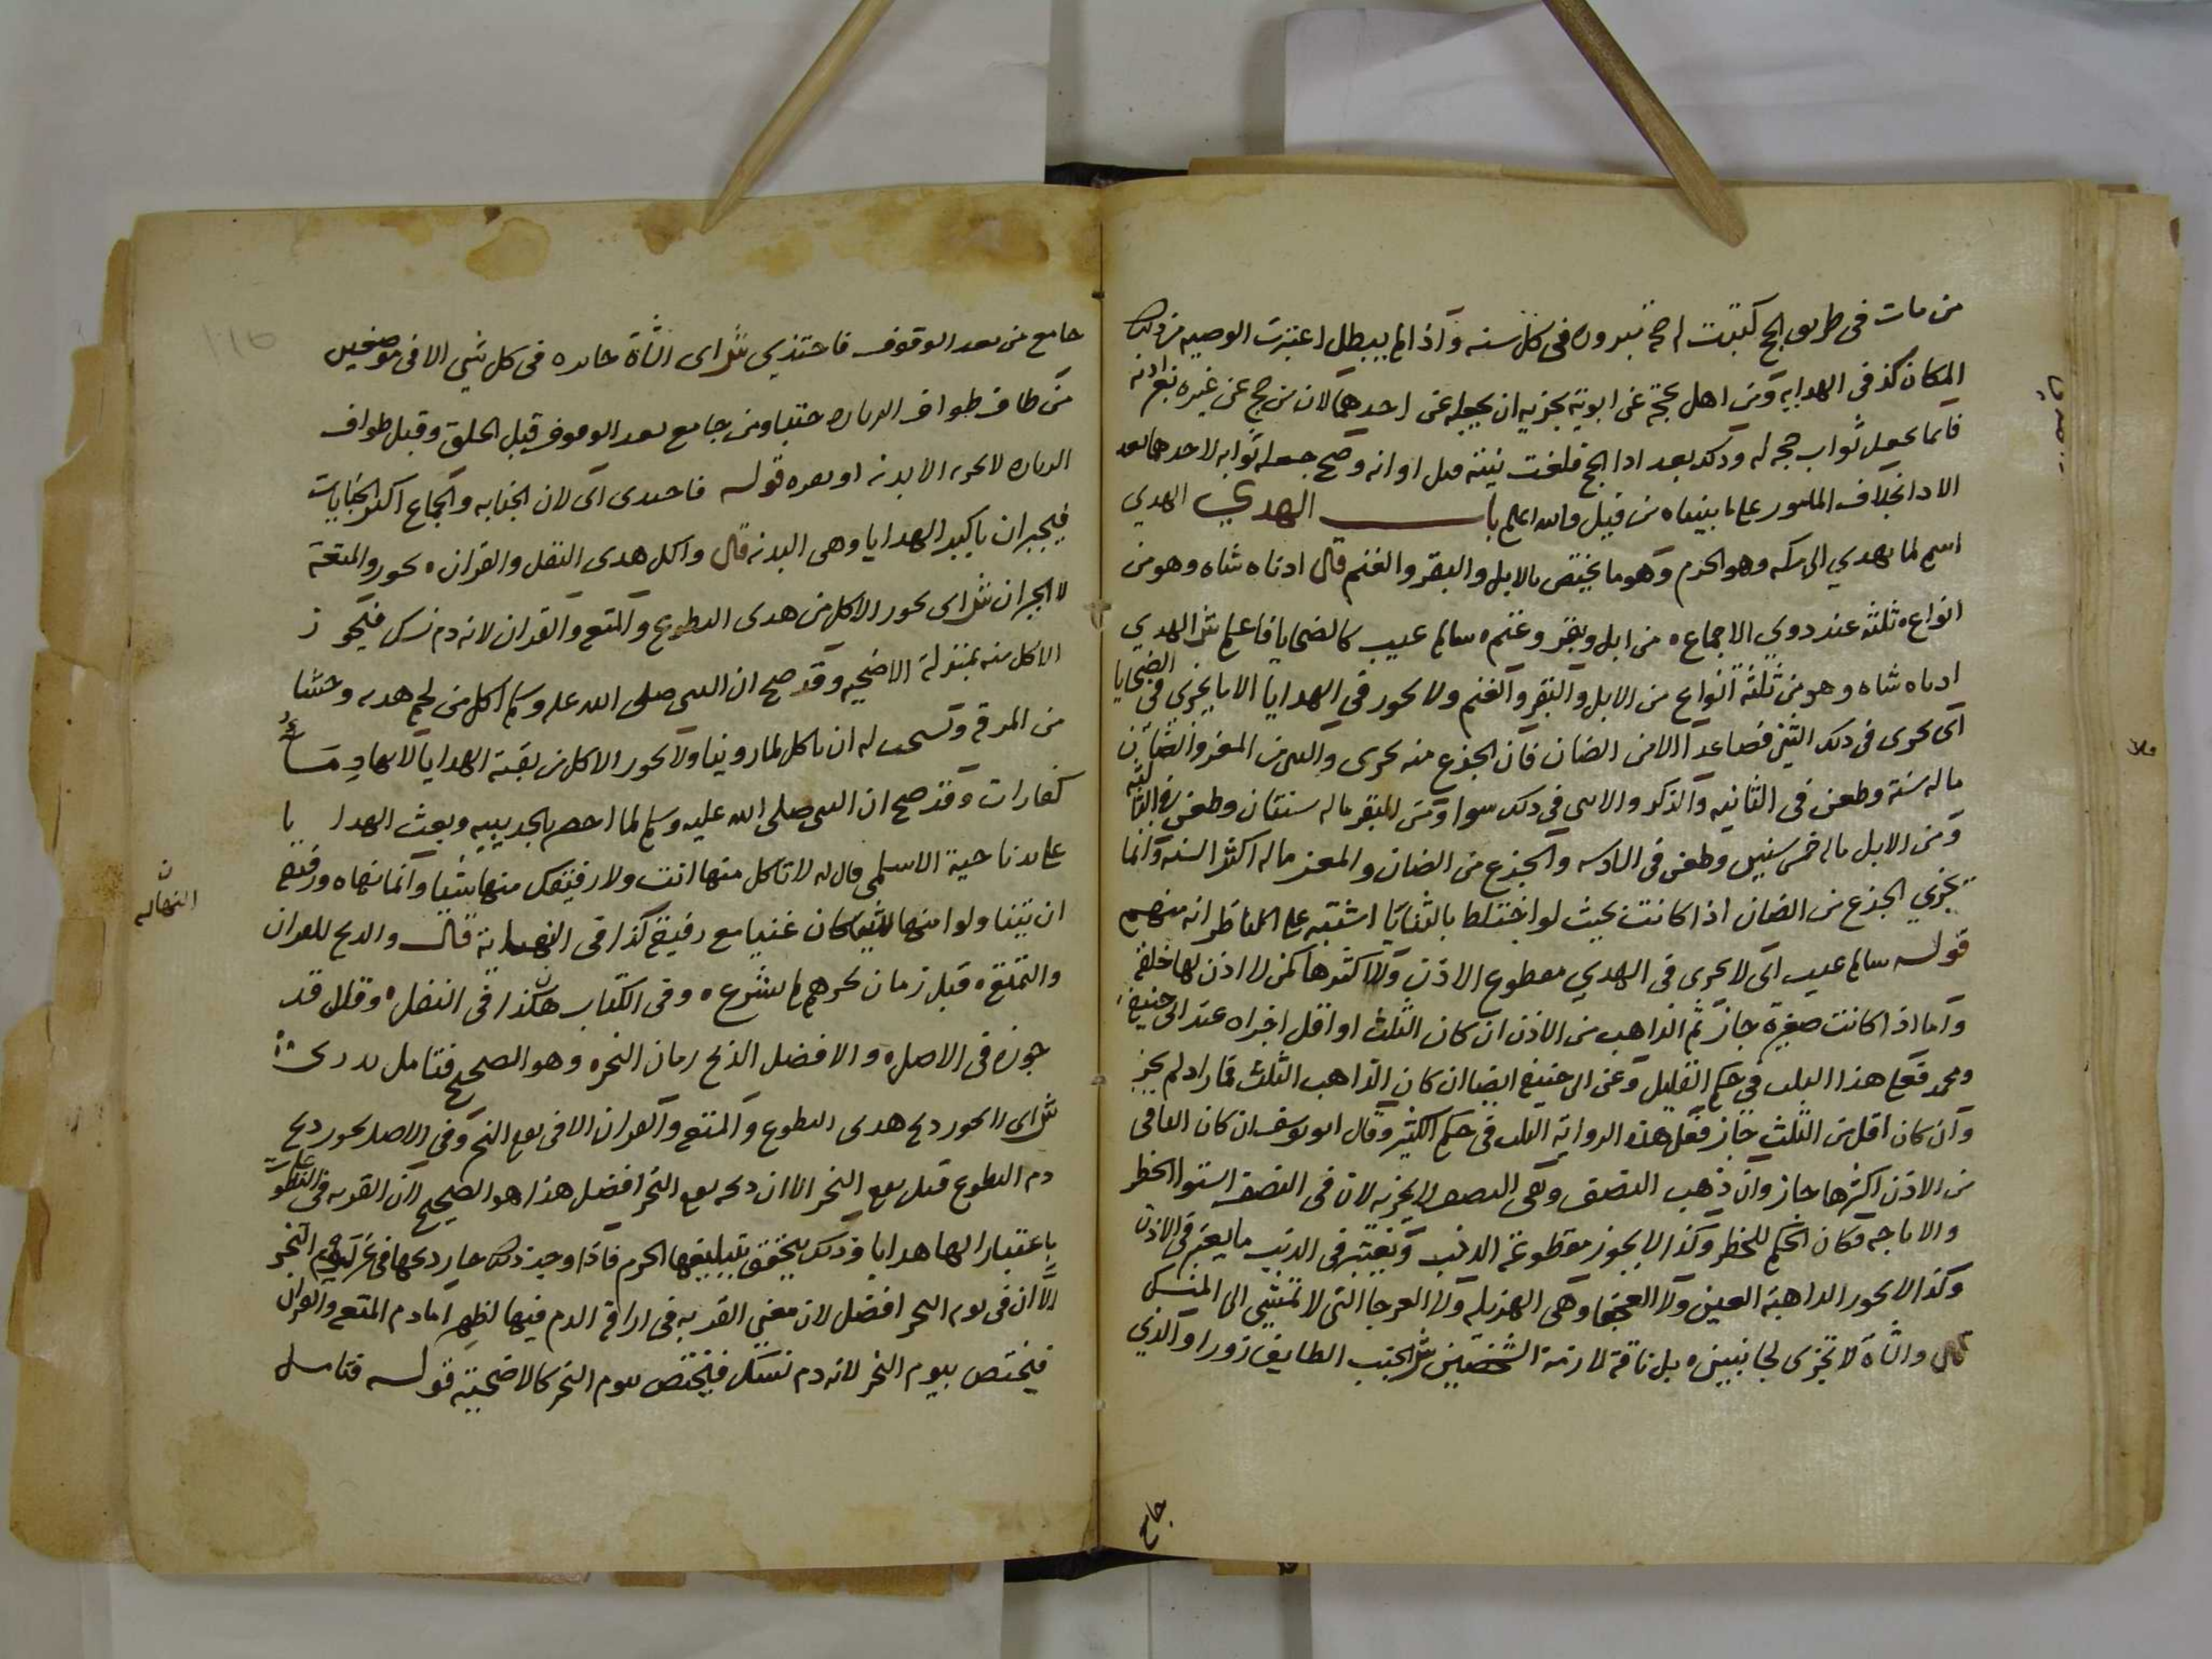 من مات فى طريق الحج كتبت له حجة مبرورة فى كل سنه واذا لم يبطل اعتبرت الوصيه من ذلك
المكان كذا فى الهدايه ومن اهل بحجة عن ابويه يجزيه ان يجعله عن احدهما لان من حج عن غيره بغير اذنه
فانما يجعل ثواب حجه له وذلك بعد ادا الحج فلغت نيته قبل ادائه وصح جعله ثوابه لاحدهما بعد
الادا بخلاف المامور على ما بيناه من قبل والله اعلم باب الهدي الهدي
اسم لما يهدي الى مكه وهو الحرم وهو ما يختص بالابل والبقر والغنم قال ادناه شاه وهو من
انواع ه ثلثه عند ذوي الاجماع ه من ابل وبقر وغنم ه سالم عيب كالضحايا فاعلم ش الهدي
ادناه شاه وهو من ثلثة انواع من الابل والبقر والغنم ولا يجوز فى الهدايا الا ما يجزى فى الضحايا
اى يجزى فى ذلك الثنى فصاعدا الا من الضان فان الجذع منه يجزى والثنى من المعز والضان
ماله سنة وطعن فى الثانيه والذكر والانثى فى ذلك سوا ومن البقر ماله سنتان وطعن فى الثالثه
ومن الابل ماله خمس سنين وطعن فى السادسه والجذع من الضان والمعز ماله اكثر السنه وانما
يجزي الجذع من الضان اذا كانت بحيث لو اختلط بالثنايا اشتبه على الناظر انه منهم
قوله سالم عيب اى لا يجزى فى الهدي مقطوع الاذن ولا اكثرها كمن لا اذن لها خلقة
واما اذا كانت صغيرة جاز ثم الذاهب من الاذن ان كان الثلث او اقل اجزاه عند ابى حنيفة
ومحمد فعلى هذا الثلث فى حكم القليل وعن ابى حنيفة ايضا ان كان الذاهب الثلث فما زاد لم يجز
وان كان اقل من الثلث جاز فعلى هذه الرواية الثلث فى حكم الكثير وقال ابو يوسف ان كان الباقى
من الاذن اكثرها جاز وان ذهب النصف وبقى النصف لا يجزيه لان فى النصف استوا الحظر
والاباحه فكان الحكم للحظر وكذا لا يجوز مقطوعة الذنب ويعتبر فى الذنب ما يعتبر فى الاذن
وكذا لا يجوز الذاهبة العين ولا العجفا وهى الهزيله ولا العرجا التى لا تمشي الى المنسك
قال والشاة لا تجزى لجانبين ه بل ناقة لازمة الشخصين ش الجنب الطايف زورا والذي
جامع
جامع من بعد الوقوف فاحتذي ش اى الشاة جايزه فى كل شي الا فى موضعين
من طاف طواف الزيارة جنبا ومن جامع بعد الوقوف قبل الحلق وقبل طواف
الزيارة لا يجزيه الا بدنه او بقره قوله فاحتدى اى لان الجنابه والجماع اكبر الجنايات
فيجبران باكبر الهدايا وهى البدنه قال واكل هدى النفل والقران ه يجوز والمتعة
لا الجبران ش اى يجوز الاكل من هدى التطوع والمتع والقران لانه دم نسك فيجوز
الاكل منه بمنزلة الاضحيه وقد صح ان النبى صلى الله عليه وسلم اكل من لحم هديه وحسا
من المرقة وتستحب له ان ياكل لما روينا ولا يجوز الاكل من بقية الهدايا لانها دما
كفارات وقد صح ان النبى صلى الله عليه وسلم لما احصر بالحديبيه وبعث الهدايا
على يد ناجية الاسلمى قال له لا تاكل منها انت ولا رفيقك منها شيا وانما نهاه ورفيقه
ان يتناولوا منها لانه كان غنيا مع رفيقه كذا فى النهاية قال والذبح للقران
والتمتع ه قبل زمان نحرهم لم يشرع ه وفى الكتاب هكذا فى النفل ه وقال قد
جوزه فى الاصل ه والافضل الذبح زمان النحر ه وهو الصحيح فتامل تدرى
ش اى لا يجوز ذبح هدى التطوع والمتع والقران الا فى يوم النحر وفى الاصل يجوز ذبح
دم التطوع قبل يوم النحر الا ان ذبحه يوم النحر افضل هذا هو الصحيح لان القربه فى التطوعات
باعتبار انها هدايا وذلك يتحقق بتبليغها الحرم فاذا وجد ذلك جاز ذبحها فى غير يوم النحر
الا ان فى يوم النحر افضل لان معنى القربه فى اراقة الدم فيها اظهر اما دم المتع والقران
فيختص بيوم النحر لانه دم نسك فيختص بيوم النحر كالاضحية قوله فتامل
ن
النهايه